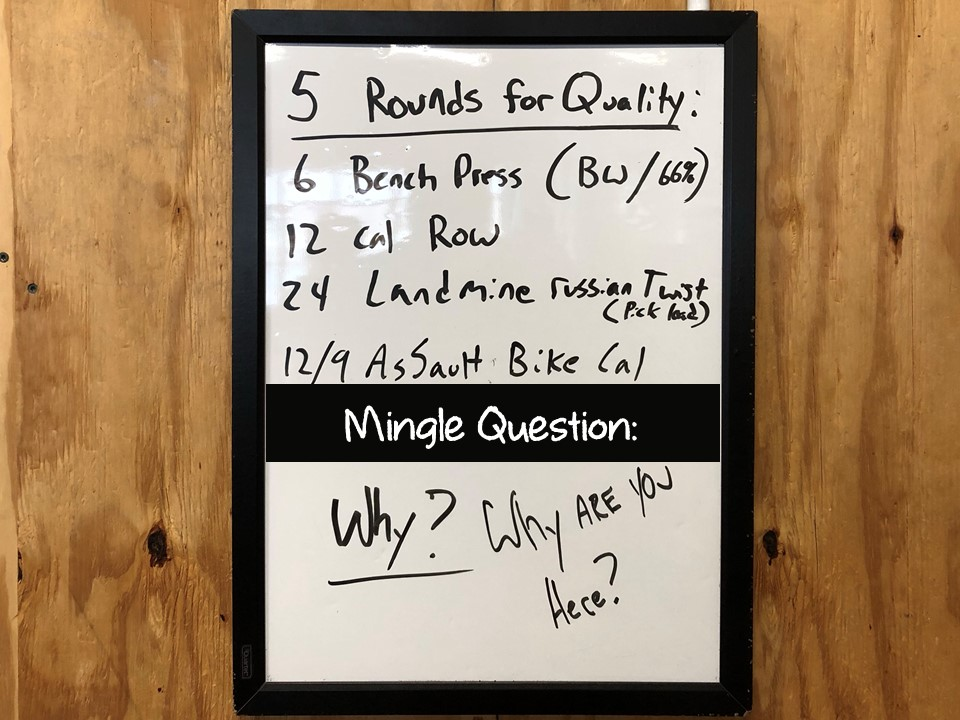 5 Rounds for Quality:
6 Bench Press (BW/66%)
12 Cal Row
24 Landmine russian Twist
(Pick load)
12/9 Assault Bike Cal
Mingle Question:
Why? Why ARE YOU
Here?
Quartet